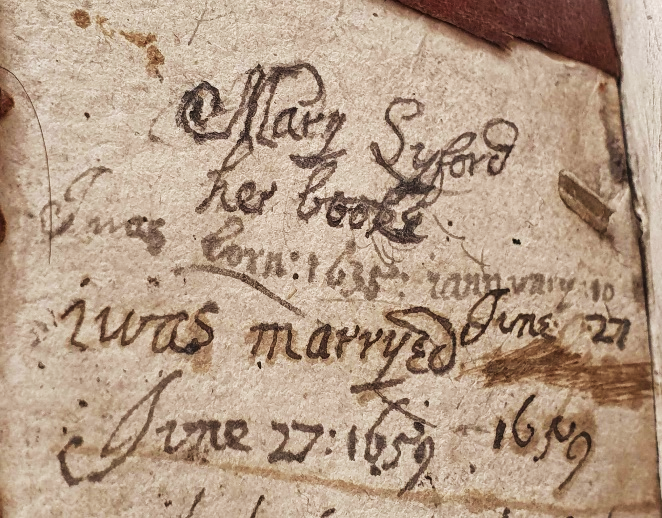 Mary Lyford
her booke
I was born: 1635: iannuary 10
i was marryed June 27
June 27: 1659 1659